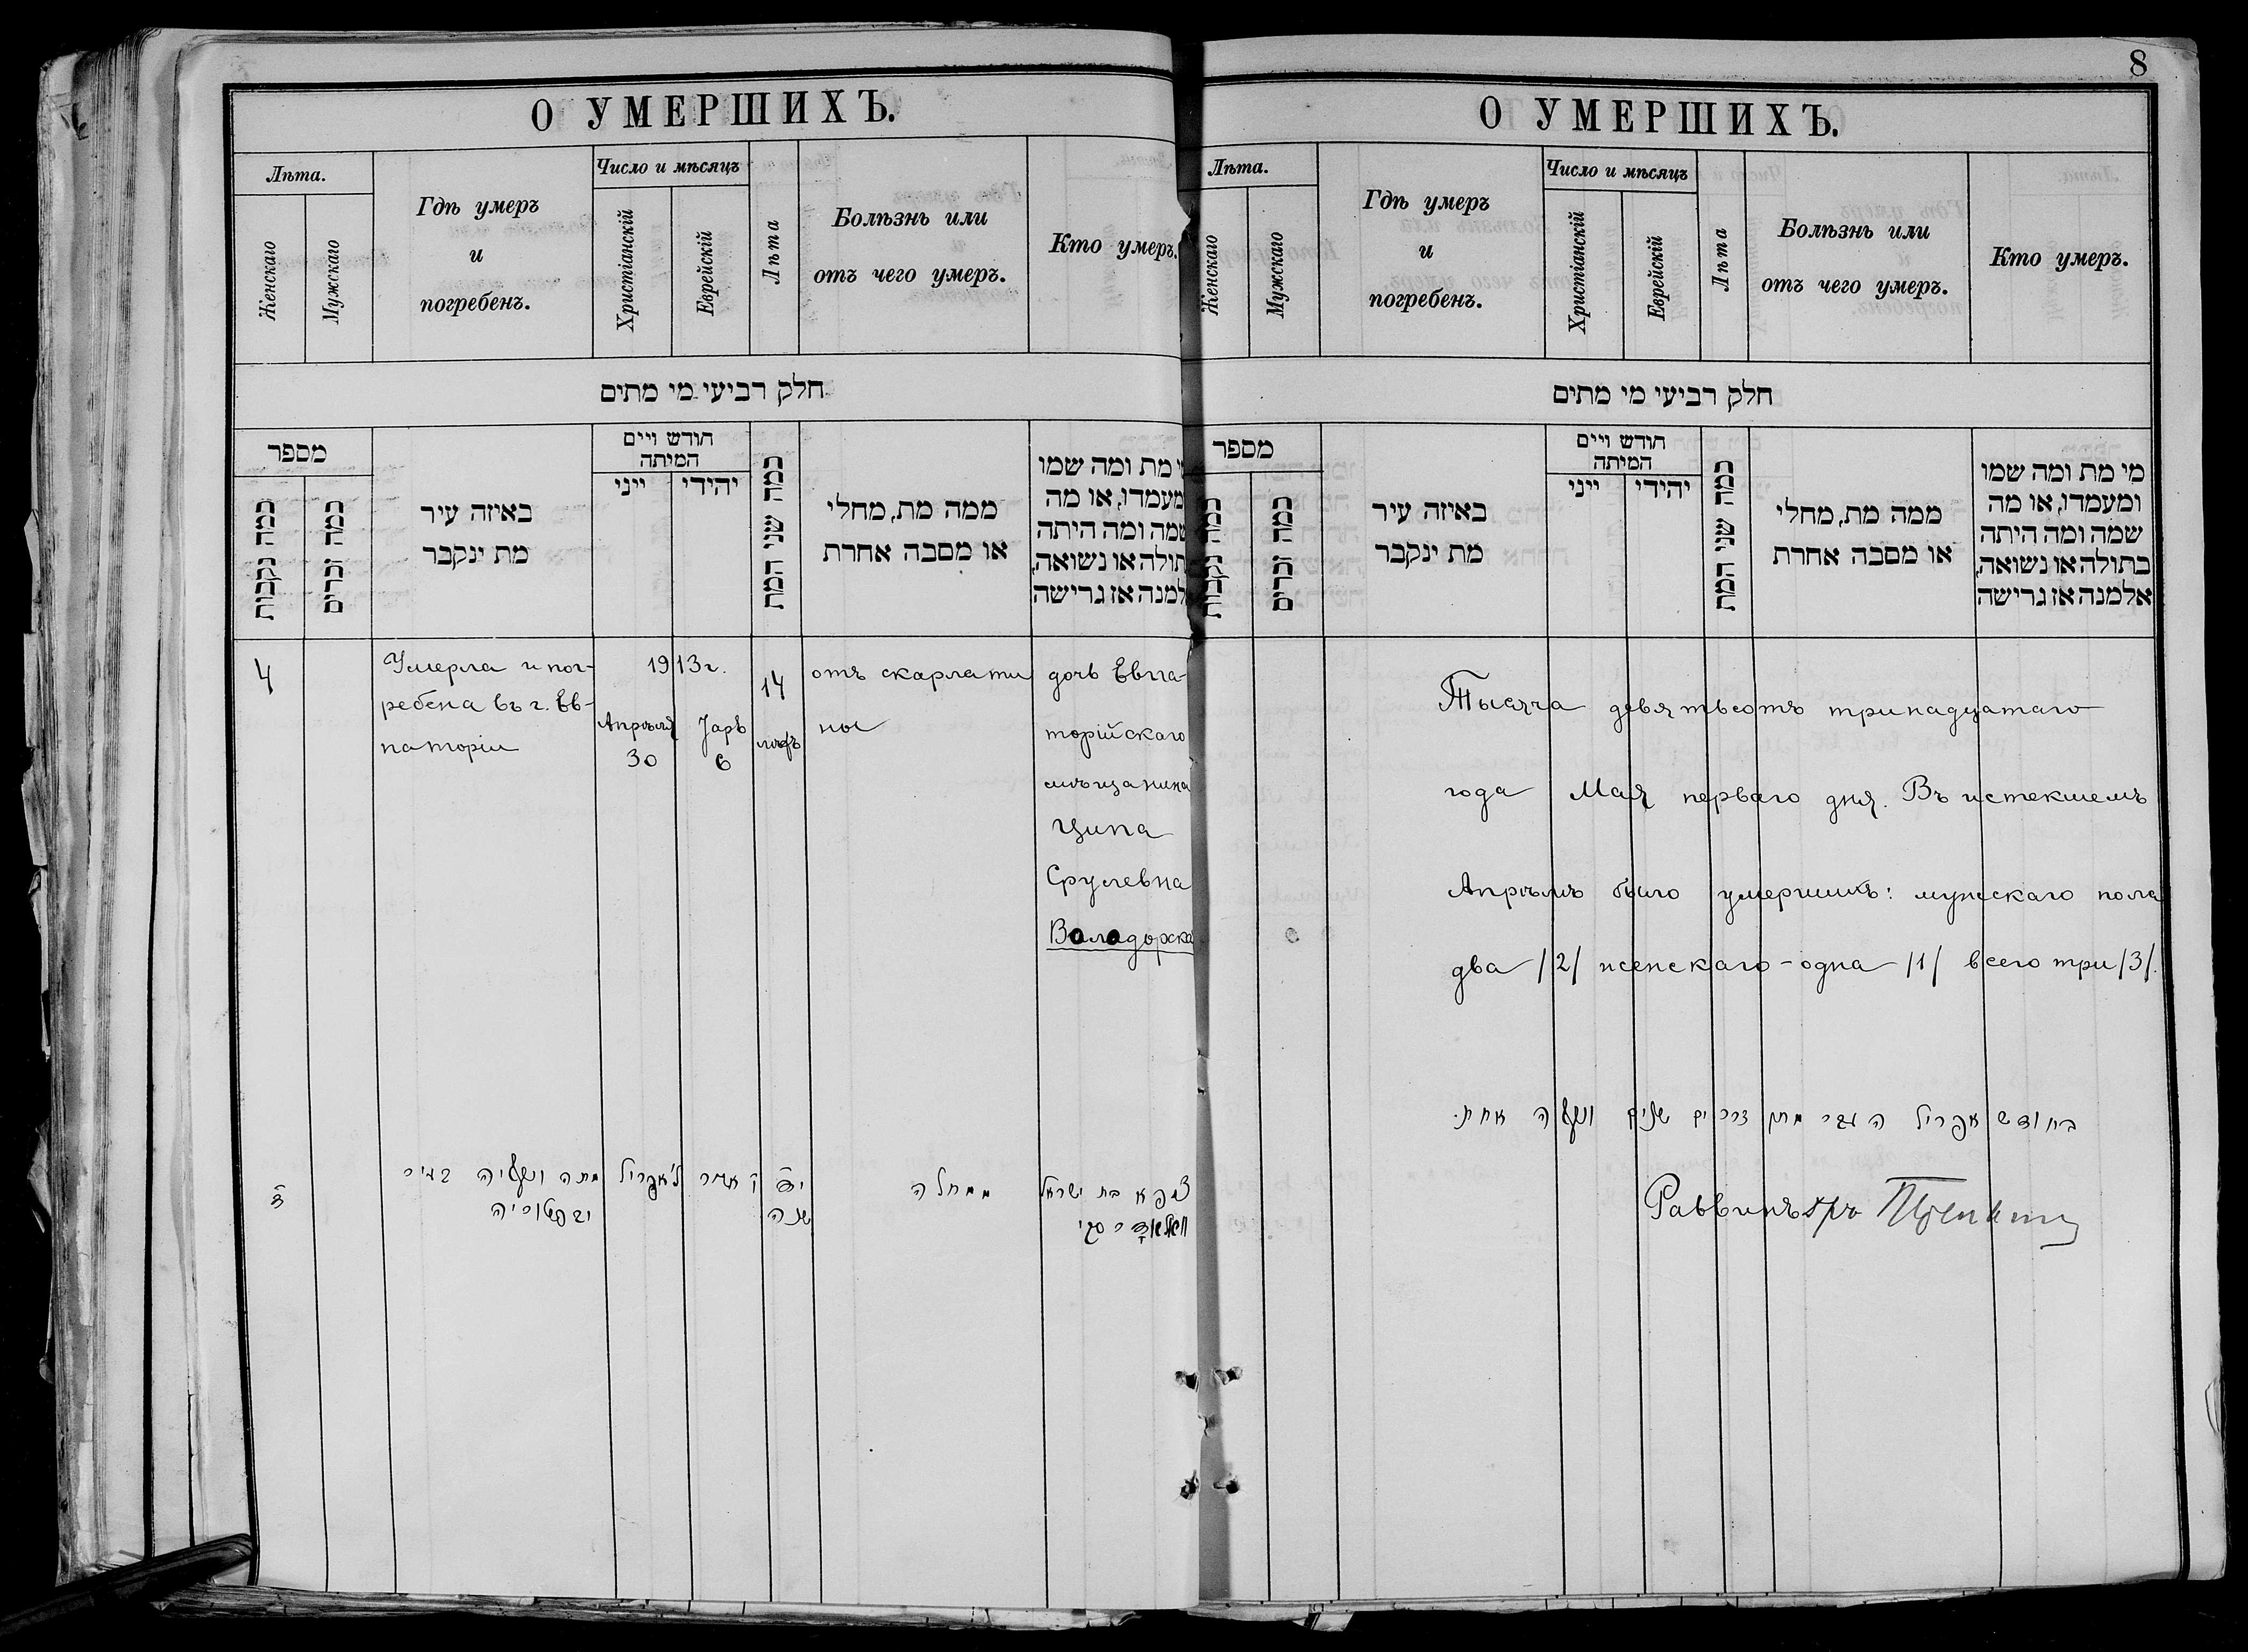 8
О УМЕРШИХЪ.
Лѣта.
Женскаго
Мужскаго
Гдѣ умеръ
и
погребенъ.
Число и мѣсяцъ
Христіанскій
Еврейскій
Лѣта
Болѣзнь или
отъ чего умеръ.
Кто умеръ.
חלק רביעי מי מתים
מספר
כמה נקבות
כמה זכרים
באיזה עיר
מת ינקבר
חודש ויים
המיתה
ייני
יהודי
כמה שני המת
ממה מת, מחלי
או מסבה אחרת
מי מת ומה שמו
ומעמדו, או מה
שמה ומה היתה
בתולה או נשואה,
אלמנה אז גרישה
4
Умерла и пог-
ребена въ г. Ев-
паторіи
1913г.
Апрѣля
30
Јаръ
6
14
лѣтъ
отъ скарлати
ны
дочь Евпа-
торійскаго
мѣщанина
Ципа
Срулевна
Валадорска
ד
מתה ונקברה בעיר
יבפטוריה
ל' אפריל
ו אייר
יד
שנה
ממחלה
ציפא בת ישראל
О УМЕРШИХЪ.
Лѣта.
Женскаго
Мужскаго
Гдѣ умеръ
и
погребенъ.
Число и мѣсяцъ
Христіанскій
Еврейскій
Лѣта
Болѣзнь или
отъ чего умеръ.
Кто умеръ.
חלק רביעי מי מתים
מספר
כמה נקבות
כמה זכרים
באיזה עיר
מת ינקבר
חודש ויים
המיתה
ייני
יהודי
כמה שני המת
ממה מת, מחלי
או מסבה אחרת
מי מת ומה שמו
ומעמדו, או מה
שמה ומה היתה
בתולה או נשואה,
אלמנה אז גרישה
Тысяча девятьсотъ тринадцатаго
года Мая перваго дня. Въ истекшемъ
Апрѣлѣ было умершихъ: мужскаго пола
два /2/ женскаго - одна /1/ всего три /3/.
בחודש אפריל העבר מתו זכרים שנים ונקבה אחת.
Раввинъ